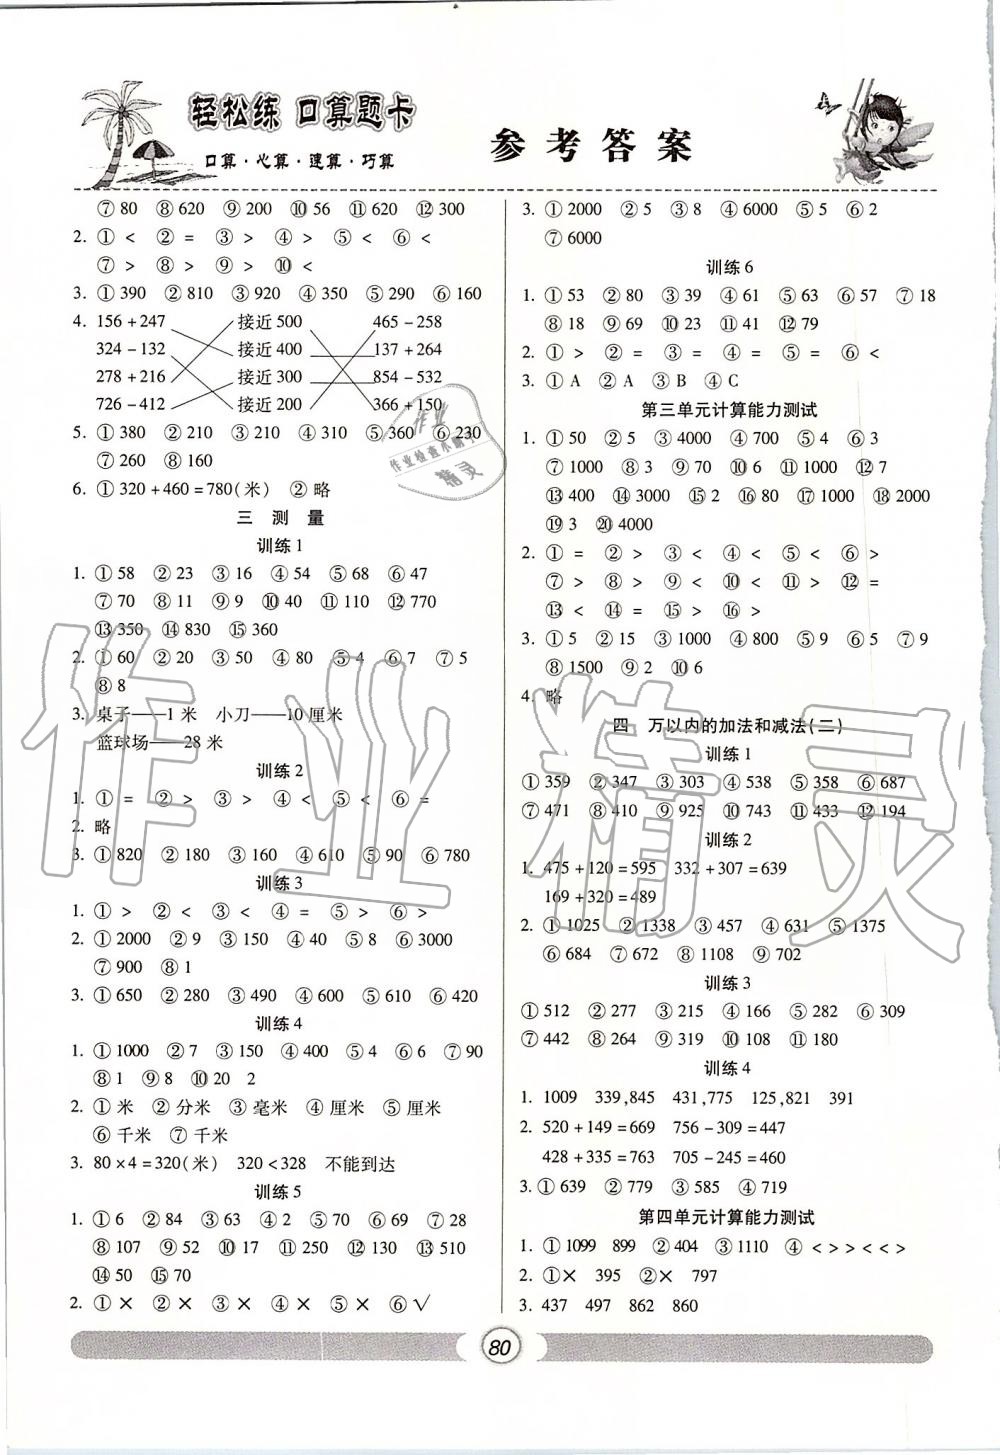 轻松练 口算题卡
口算·心算·速算·巧算
参考答案
⑦80 ⑧620 ⑨200 ⑩56 ⑪620 ⑫300
2. ①< ②= ③> ④> ⑤< ⑥<
⑦> ⑧> ⑨> ⑩<
3. ①390 ②810 ③920 ④350 ⑤290 ⑥160
4. 156+247 接近500 465-258
324-132 接近400 137+264
278+216 接近300 854-532
726-412 接近200 366+150
5. ①380 ②210 ③210 ④310 ⑤360 ⑥230
⑦260 ⑧160
6. ①320+460=780(米) ②略
三 测 量
训练1
1. ①58 ②23 ③16 ④54 ⑤68 ⑥47
⑦70 ⑧11 ⑨9 ⑩40 ⑪110 ⑫770
⑬350 ⑭830 ⑮360
2. ①60 ②20 ③50 ④80 ⑤4 ⑥7 ⑦5
⑧8
3. 桌子——1米 小刀——10厘米
篮球场——28米
训练2
1. ①= ②> ③> ④< ⑤< ⑥=
2. 略
3. ①820 ②180 ③160 ④610 ⑤90 ⑥780
训练3
1. ①> ②< ③< ④= ⑤> ⑥>
2. ①2000 ②9 ③150 ④40 ⑤8 ⑥3000
⑦900 ⑧1
3. ①650 ②280 ③490 ④600 ⑤610 ⑥420
训练4
1. ①1000 ②7 ③150 ④400 ⑤4 ⑥6 ⑦90
⑧1 ⑨8 ⑩20 2
2. ①米 ②分米 ③毫米 ④厘米 ⑤厘米
⑥千米 ⑦千米
3. 80×4=320(米) 320<328 不能到达
训练5
1. ①6 ②84 ③63 ④2 ⑤70 ⑥69 ⑦28
⑧107 ⑨52 ⑩17 ⑪250 ⑫350 ⑬510
⑭50 ⑮70
2. ①× ②× ③× ④× ⑤× ⑥√
3. ①2000 ②5 ③8 ④6000 ⑤5 ⑥2
⑦6000
训练6
1. ①53 ②80 ③39 ④61 ⑤63 ⑥57 ⑦18
⑧18 ⑨69 ⑩23 ⑪41 ⑫79
2. ①> ②= ③= ④= ⑤= ⑥<
3. ①A ②A ③B ④C
第三单元计算能力测试
1. ①50 ②5 ③4000 ④700 ⑤4 ⑥3
⑦1000 ⑧3 ⑨70 ⑩10 ⑪1000 ⑫7
⑬400 ⑭3000 ⑮2 ⑯80 ⑰1000 ⑱2000
⑲3 ⑳4000
2. ①= ②> ③< ④< ⑤< ⑥>
⑦> ⑧> ⑨< ⑩< ⑪> ⑫=
⑬< ⑭= ⑮> ⑯>
3. ①5 ②15 ③1000 ④800 ⑤9 ⑥5 ⑦9
⑧1500 ⑨2 ⑩6
4. 略
四 万以内的加法和减法(二)
训练1
①359 ②347 ③303 ④538 ⑤358 ⑥687
⑦471 ⑧410 ⑨925 ⑩743 ⑪433 ⑫194
训练2
1. 475+120=595 332+307=639
169+320=489
2. ①1025 ②1338 ③457 ④631 ⑤1375
⑥684 ⑦672 ⑧1108 ⑨702
训练3
①512 ②277 ③215 ④166 ⑤282 ⑥309
⑦442 ⑧264 ⑨319 ⑩108 ⑪180
训练4
1. 1009 339,845 431,775 125,821 391
2. 520+149=669 756-309=447
428+335=763 705-245=460
3. ①639 ②779 ③585 ④719
第四单元计算能力测试
1. ①1099 899 ②404 ③1110 ④<>><<>
2. ①× 395 ②× 797
3. 437 497 862 860
80
作业
作业检查小帮手
精灵
作业精灵